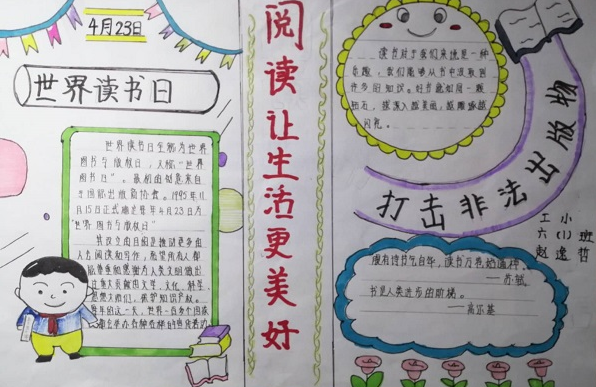 4月23日
世界读书日
世界读书日全称为世界
图书与版权日，又称"世界
图书日"。最初的创意来自
于国际出版商协会。1995年11
月15日正式确定每年4月23日为
"世界图书与版权日"
其设立目的是推动更多的
人去阅读和写作，希望所有人都
献的文学、文化、科学、
思想大师们，保护知识产权。
每年的这一天，世界一百多个国家
都会举办各种各样的
阅读让生活更美好
读书对于我们来说是一种
乐趣，我们能够从书中汲取到
许多的知识。好书就如同一颗
钻石，
闪亮。
打击非法出版物
工小
六(1)班
赵逸哲
腹有诗书气自华，读书万卷始通神。
——苏轼
书是人类进步的阶梯。
——高尔基